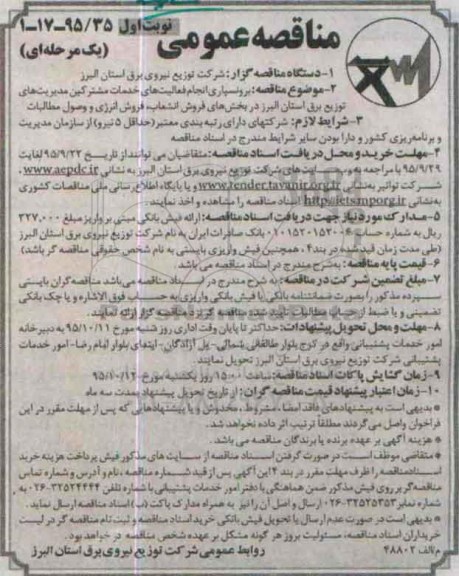 مناقصه عمومی
نوبت اول
۹۵/۳۵-۱۷-۱
(یک مرحله‌ای)
۱-دستگاه مناقصه گزار: شرکت توزیع نیروی برق استان البرز
۲-موضوع مناقصه: برونسپاری انجام فعالیت‌های خدمات مشترکین مدیریت‌های
توزیع برق استان البرز در بخش‌های فروش انشعاب، فروش انرژی و وصول مطالبات
۳-شرایط لازم: شرکتهای دارای رتبه بندی معتبر (حداقل ۵ نیرو) از سازمان مدیریت
و برنامه‌ریزی کشور و دارا بودن سایر شرایط مندرج در اسناد مناقصه
۴-مهلت خرید و محل دریافت اسناد مناقصه: متقاضیان می توانند از تاریخ ۹۵/۹/۲۲ لغایت
۹۵/۹/۲۹ با مراجعه به وب سایت های شرکت توزیع نیروی برق استان البرز به نشانی www.aepdc.ir،
شرکت توانیر به‌نشانی www.tender.tavanir.org.ir و یا پایگاه اطلاع رسانی ملی مناقصات کشوری
به‌نشانی http://iets.mporg.ir اسناد مناقصه را مشاهده و اخذ نمایند.
۵-مدارک مورد نیاز جهت دریافت اسناد مناقصه: ارائه فیش بانکی مبنی بر واریز مبلغ ۳۲۷.۰۰۰
ریال به شماره حساب ۰۱۰۱۵۲۰۱۵۲۰۰۶ بانک صادرات ایران به نام شرکت توزیع نیروی برق استان البرز
(طی مدت زمان قید شده در بند ۴، همچنین فیش واریزی بایستی به نام شخص حقوقی مناقصه گر باشد)
۶-قیمت پایه مناقصه: به‌شرح مندرج در اسناد مناقصه می باشد.
۷-مبلغ تضمین شرکت در مناقصه: به شرح مندرج در اسناد مناقصه می‌باشد مناقصه‌گران بایستی
سپرده مذکور را بصورت ضمانتنامه بانکی یا فیش بانکی واریزی به حساب فوق‌الاشاره و یا چک بانکی
تضمینی و یا ضبط از حساب مطالبات تایید شده مناقصه گر نزد مناقصه گزار ارائه نمایند.
۸-مهلت و محل تحویل پیشنهادات: حداکثر تا پایان وقت اداری روز شنبه مورخ ۹۵/۱۰/۱۱ به دبیرخانه
امور خدمات پشتیبانی واقع در کرج بلوار طالقانی شمالی- پل آزادگان- ابتدای بلوار امام رضا- امور خدمات
پشتیبانی شرکت توزیع نیروی برق استان البرز تحویل نمایند.
۹-زمان گشایش پاکات اسناد مناقصه: ساعت ۱۵:۰۰ روز یکشنبه مورخ ۹۵/۱۰/۱۲
۱۰-زمان اعتبار پیشنهاد قیمت مناقصه گران: از تاریخ تحویل پیشنهاد بمدت سه ماه
* بدیهی است به پیشنهادهای فاقد امضاء، مشروط، مخدوش و یا پیشنهادهایی که پس از مهلت مقرر در این
فراخوان واصل می‌گردند مطلقاً ترتیب اثر داده نخواهد شد.
* هزینه آگهی بر عهده برنده یا برندگان مناقصه می باشد.
* متقاضی موظف است در صورت گرفتن اسناد مناقصه از سایت های مذکور فیش پرداخت هزینه خرید
اسناد مناقصه را ظرف مهلت مقرر در بند ۴ این آگهی پس از قید شماره مناقصه، نام و آدرس و شماره تماس
مناقصه‌گر بر روی فیش مذکور ضمن هماهنگی با دفتر امور خدمات پشتیبانی با شماره تلفن ۳۲۵۲۴۴۴۴-۰۲۶ به
شماره نمابر ۳۲۵۲۵۳۵۳-۰۲۶ ارسال و اصل آن را نیز به همراه مدارک پاکت (ب) اسناد مناقصه ارسال نماید.
* بدیهی است در صورت عدم ارسال یا تحویل فیش بانکی خرید اسناد مناقصه و ثبت نام مناقصه گر در لیست
خریداران اسناد مناقصه، مسئولیت بروز هر گونه مشکل بر عهده شخص مناقصه گر خواهد بود.
م/الف ۴۸۸۰۲
روابط عمومی شرکت توزیع نیروی برق استان البرز